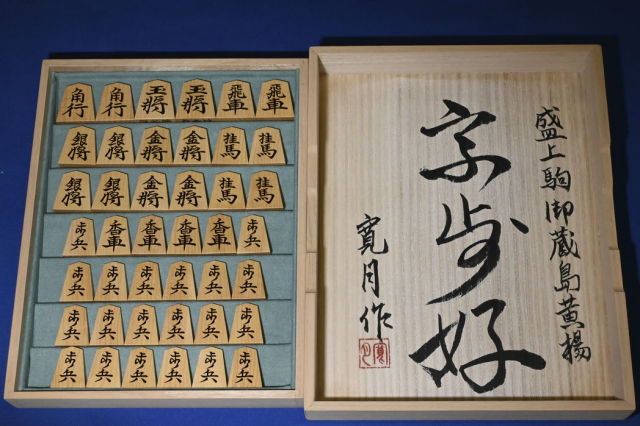 角行 角行 玉将 玉将 飛車 飛車
銀将 銀将 金将 金将 桂馬 桂馬
銀将 銀将 金将 金将 桂馬 桂馬
歩兵 香車 香車 香車 香車 歩兵
歩兵 歩兵 歩兵 歩兵 歩兵 歩兵
歩兵 歩兵 歩兵 歩兵 歩兵 歩兵
歩兵 歩兵 歩兵 歩兵 歩兵
盛上駒御蔵島黄楊
宗歩好
寛月作